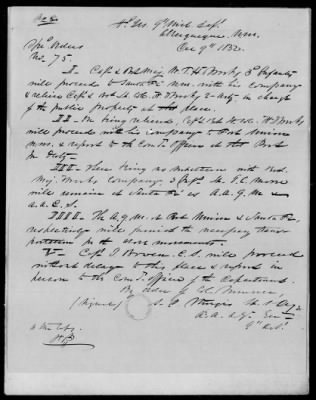 Hd. Qrs. 9th Mil. Dept.
Albuquerque, N.M.
Dec 9th 1852.
Spl Orders
No. 75
I — Capt. & Bvt Maj. W. T. H. Brooks 3d Infantry
will proceed to Santa Fe N.M. with his company
& relieve Capt. & Bvt. Lt. Col. Brooks 2d Arty in charge
of the public property at that place.
II — On being relieved, Capt & Bvt Lt. Col. H. Brooks
will proceed with his company to Fort Union
N.M. & report to the Com'd. officer at that Post
for Duty —
III — There being no subaltern with Bvt.
Maj. Brooks company,
will remain at Santa Fe as A.A.Q.M. &
A.A.C.S.
IIII — The A.Q.M. at Fort Union & Santa Fe,
respectively will furnish the necessary trans-
portation for the above movements.
V — Capt. I Bowen C.S. will proceed
without delay to this place & report in
person to the Com'd. officer of the Department.
By order of Col. Sumner
(Signed) S. D. Sturgis
A.A. Adjt. Genl
9th Dept.
A true copy